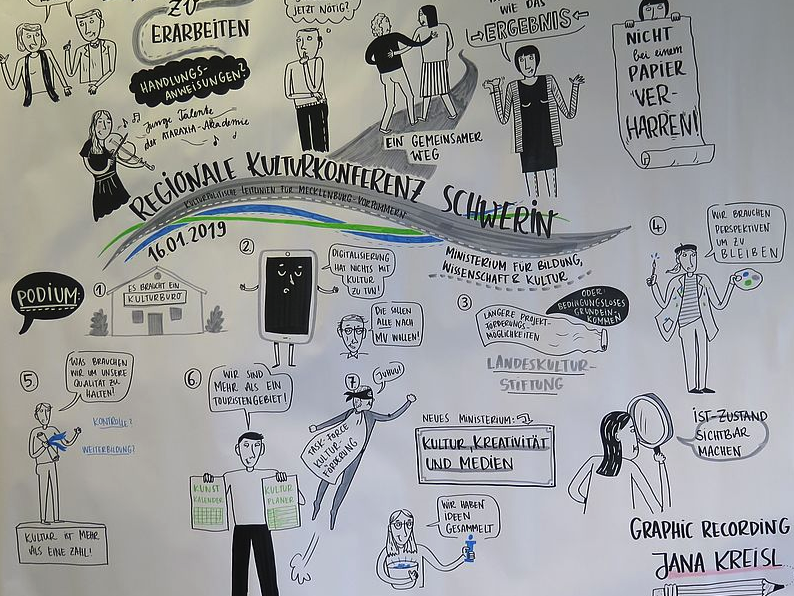 ZU
ERARBEITEN
HANDLUNGS-
ANWEISUNGEN?
Junge Talente
der ATARAXIA-Akademie
JETZT NÖTIG?
EIN GEMEINSAMER
WEG
WIE DAS
ERGEBNIS
NICHT
bei einem
PAPIER
VER-
HARREN!
REGIONALE KULTURKONFERENZ SCHWERIN
KULTURPOLITISCHE LEITLINIEN FÜR MECKLENBURG-VORPOMMERN
16.01.2019
MINISTERIUM FÜR BILDUNG,
WISSENSCHAFT & KULTUR
PODIUM:
1
ES BRAUCHT EIN
KULTURBÜRO
2
DIGITALISIERUNG
HAT NICHTS MIT
KULTUR
ZU TUN!
DIE SOLLEN
ALLE NACH
MV WOLLEN!
3
LÄNGERE PROJEKT-
FÖRDERUNGS-
MÖGLICHKEITEN
ODER:
BEDINGUNGSLOSES
GRUNDEIN-
KOMMEN
LANDESKULTUR-
STIFTUNG
4
WIR BRAUCHEN
PERSPEKTIVEN
UM ZU
BLEIBEN
5
WAS BRAUCHEN
WIR UM UNSERE
QUALITÄT ZU
HALTEN?
KONTROLLE?
WEITERBILDUNG?
KULTUR IST MEHR
ALS EINE ZAHL!
6.
WIR SIND
MEHR ALS EIN
TOURISTENGEBIET!
KUNST
KALENDER
KULTUR
PLANER
7
JUHUU!
TASK-FORCE
KULTUR-
FÖRDERUNG
NEUES MINISTERIUM:
KULTUR, KREATIVITÄT
UND MEDIEN
WIR HABEN
IDEEN
GESAMMELT
IST-ZUSTAND
SICHTBAR
MACHEN
GRAPHIC RECORDING
JANA KREISL